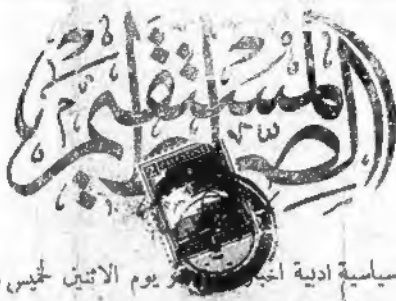 الصراط المستقيم
سياسية ادبية يوم الاثنين لخميس